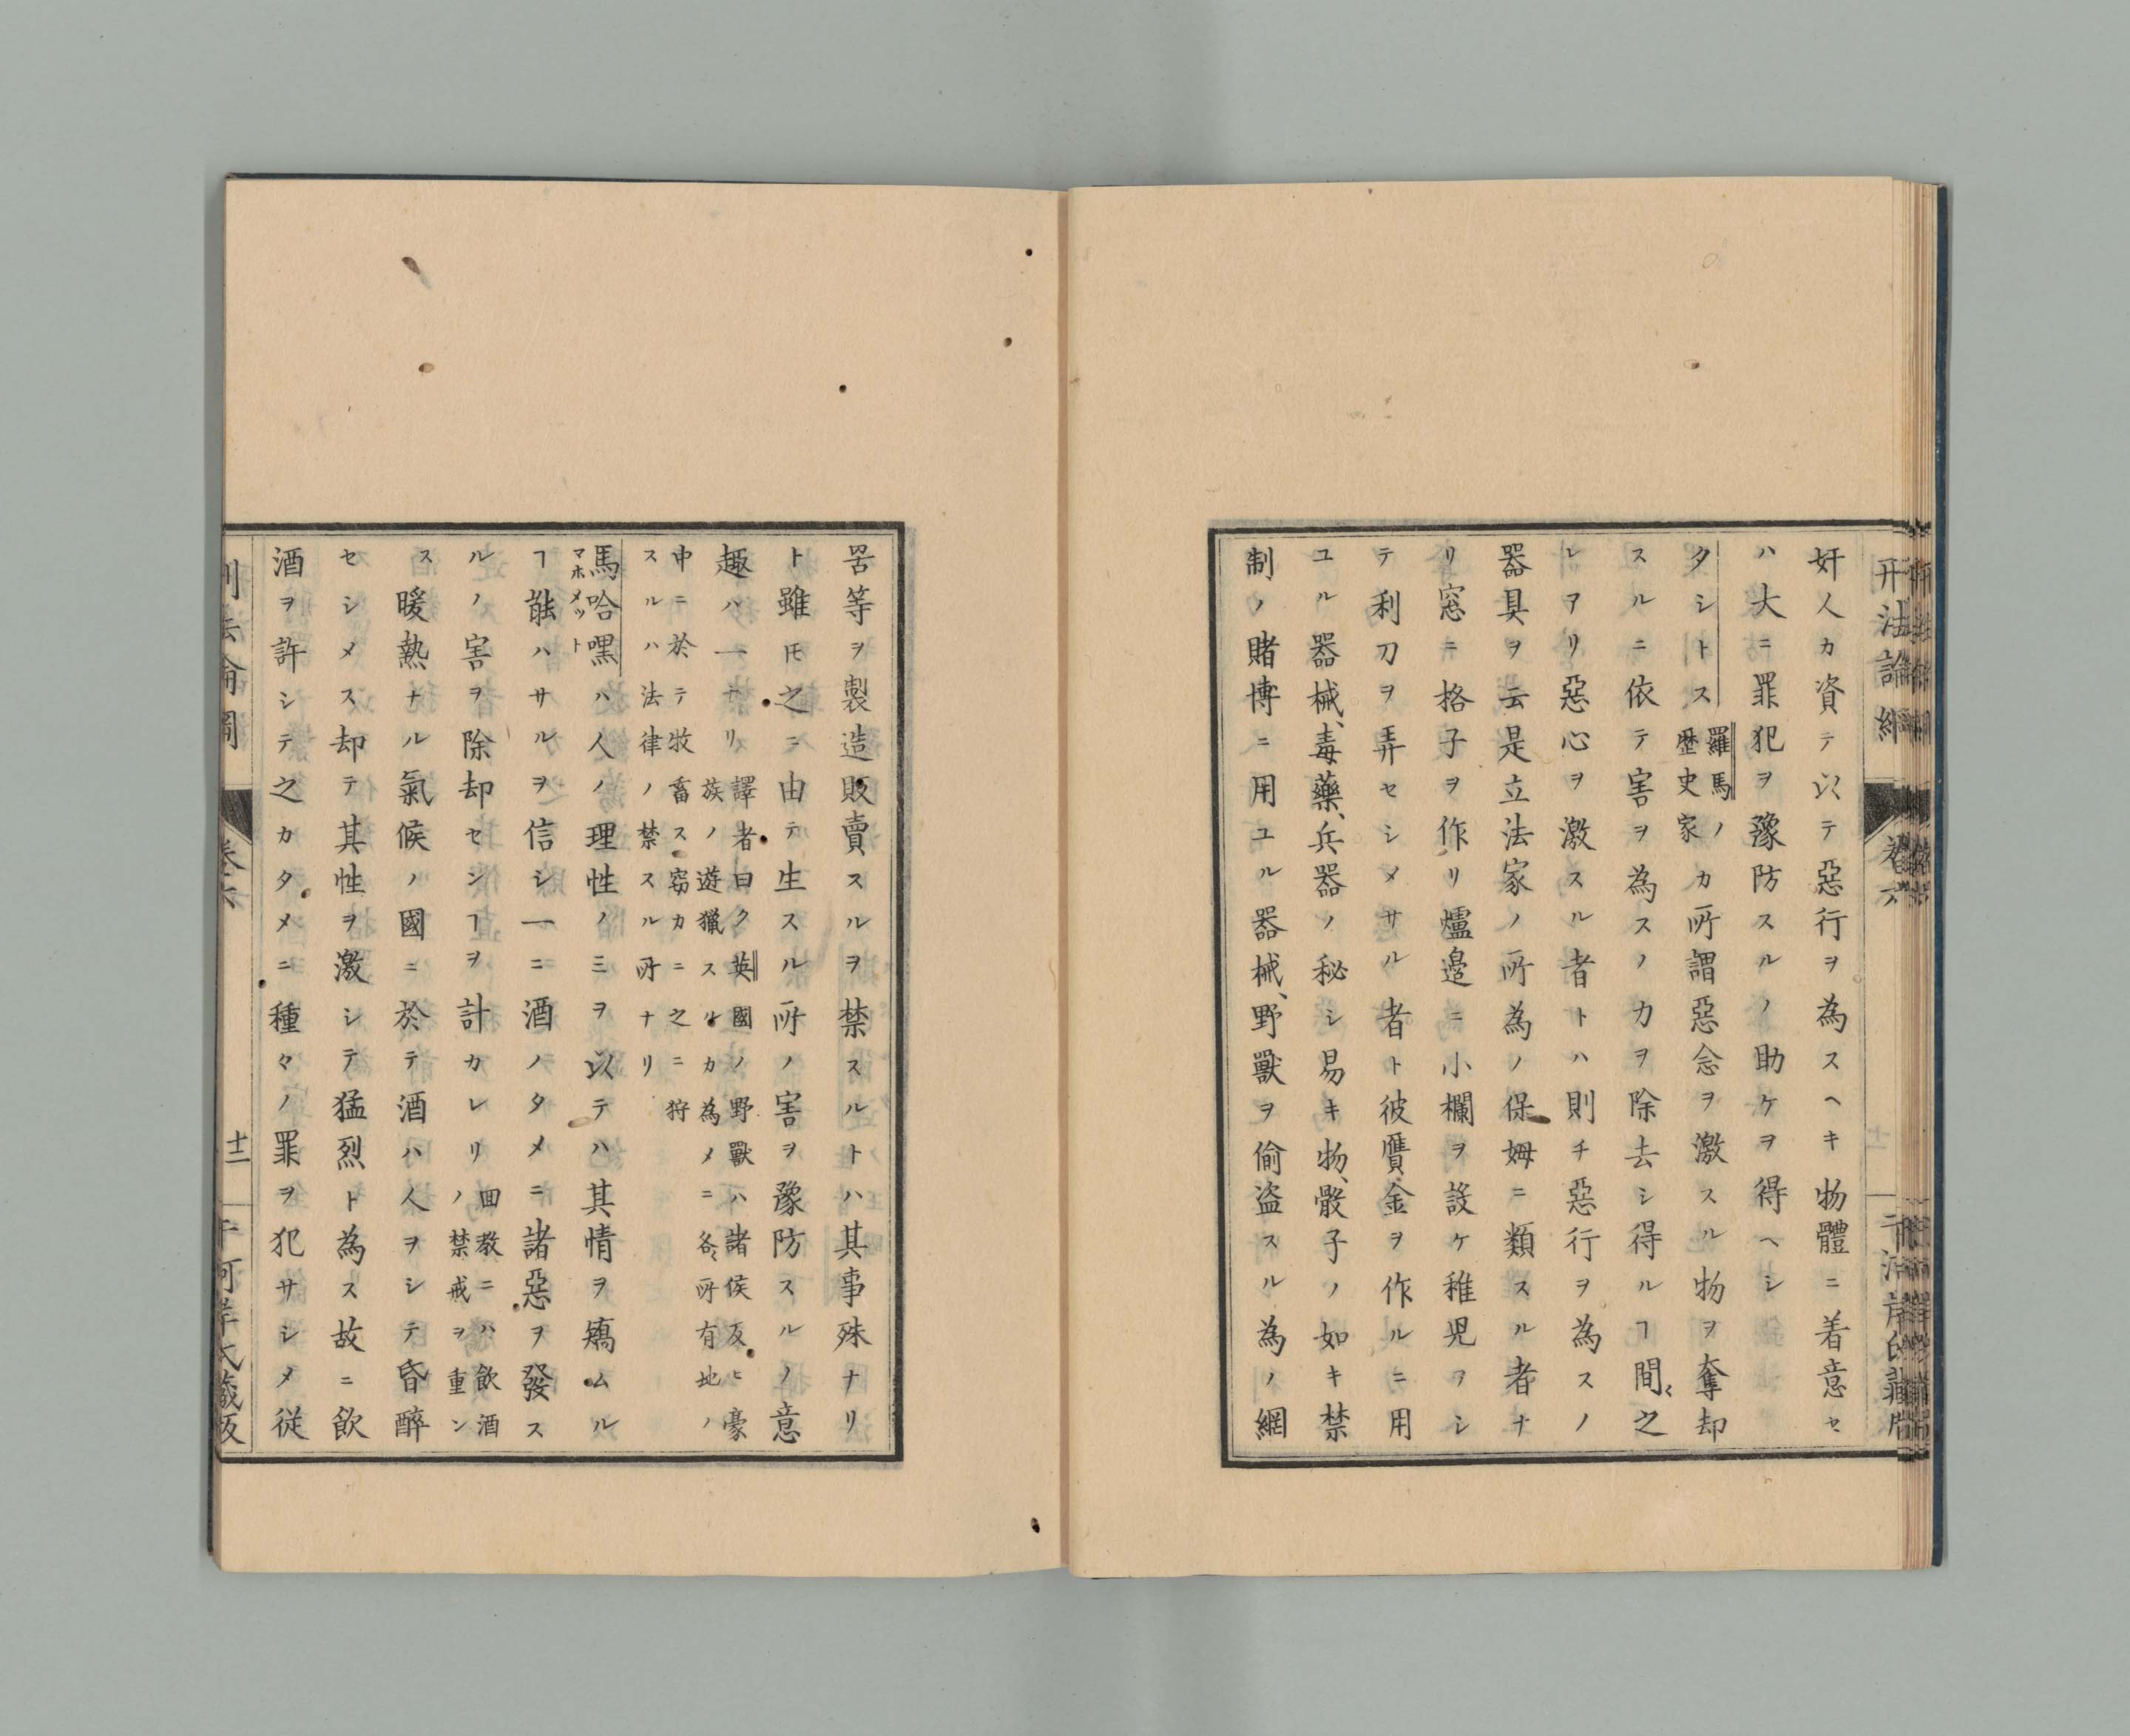 奸人カ資テ以テ惡行ヲ為スヘキ物體ニ着意セ
ハ大ニ罪犯ヲ豫防スルノ助ケヲ得ヘシ
タシトス羅馬ノ歴史家カ所謂惡念ヲ激スル物ヲ奪却
スルニ依テ害ヲ為スノ力ヲ除去シ得ルヿ間〻之
レアリ惡心ヲ激スル者トハ則チ惡行ヲ為スノ
器具ヲ云是立法家ノ所為ノ保姆ニ類スル者ナ
リ窓ニ格子ヲ作リ爐邉ニ小欄ヲ設ケ稚児ヲシ
テ利刀ヲ弄セシメサル者ト彼贋金ヲ作ルニ用
ユル器械、毒藥、兵器ノ秘シ易キ物、骰子ノ如キ禁
制ノ賭博ニ用ユル器械、野獸ヲ偷盗スル為ノ網
罟等ヲ製造販賣スルヲ禁スルトハ其事殊ナリ
ト雖𪜈之ニ由テ生スル所ノ害ヲ豫防スルノ意
趣ハ一ナリ譯者曰ク英國ノ野獸ハ諸侯及ヒ豪
族ノ遊獵スルカ為メニ各〻所有地ノ
中ニ於テ牧畜ス窃カニ之ニ狩
スルハ法律ノ禁スル所ナリ
馬哈嘿マホメットハ人ノ理性ノミヲ以テハ其情ヲ矯ムル
ヿ能ハサルヲ信シ一ニ酒ノタメニ諸惡ヲ發ス
ルノ害ヲ除却センヿヲ計カレリ回教ニハ飲酒
ノ禁戒ヲ重ン
ス暖熱ナル氣候ノ國ニ於テ酒ハ人ヲシテ昏醉
セシメス却テ其性ヲ激シテ猛烈ト為ス故ニ飲
酒ヲ許シテ之カタメニ種々ノ罪ヲ犯サシメ従
卷六
十二